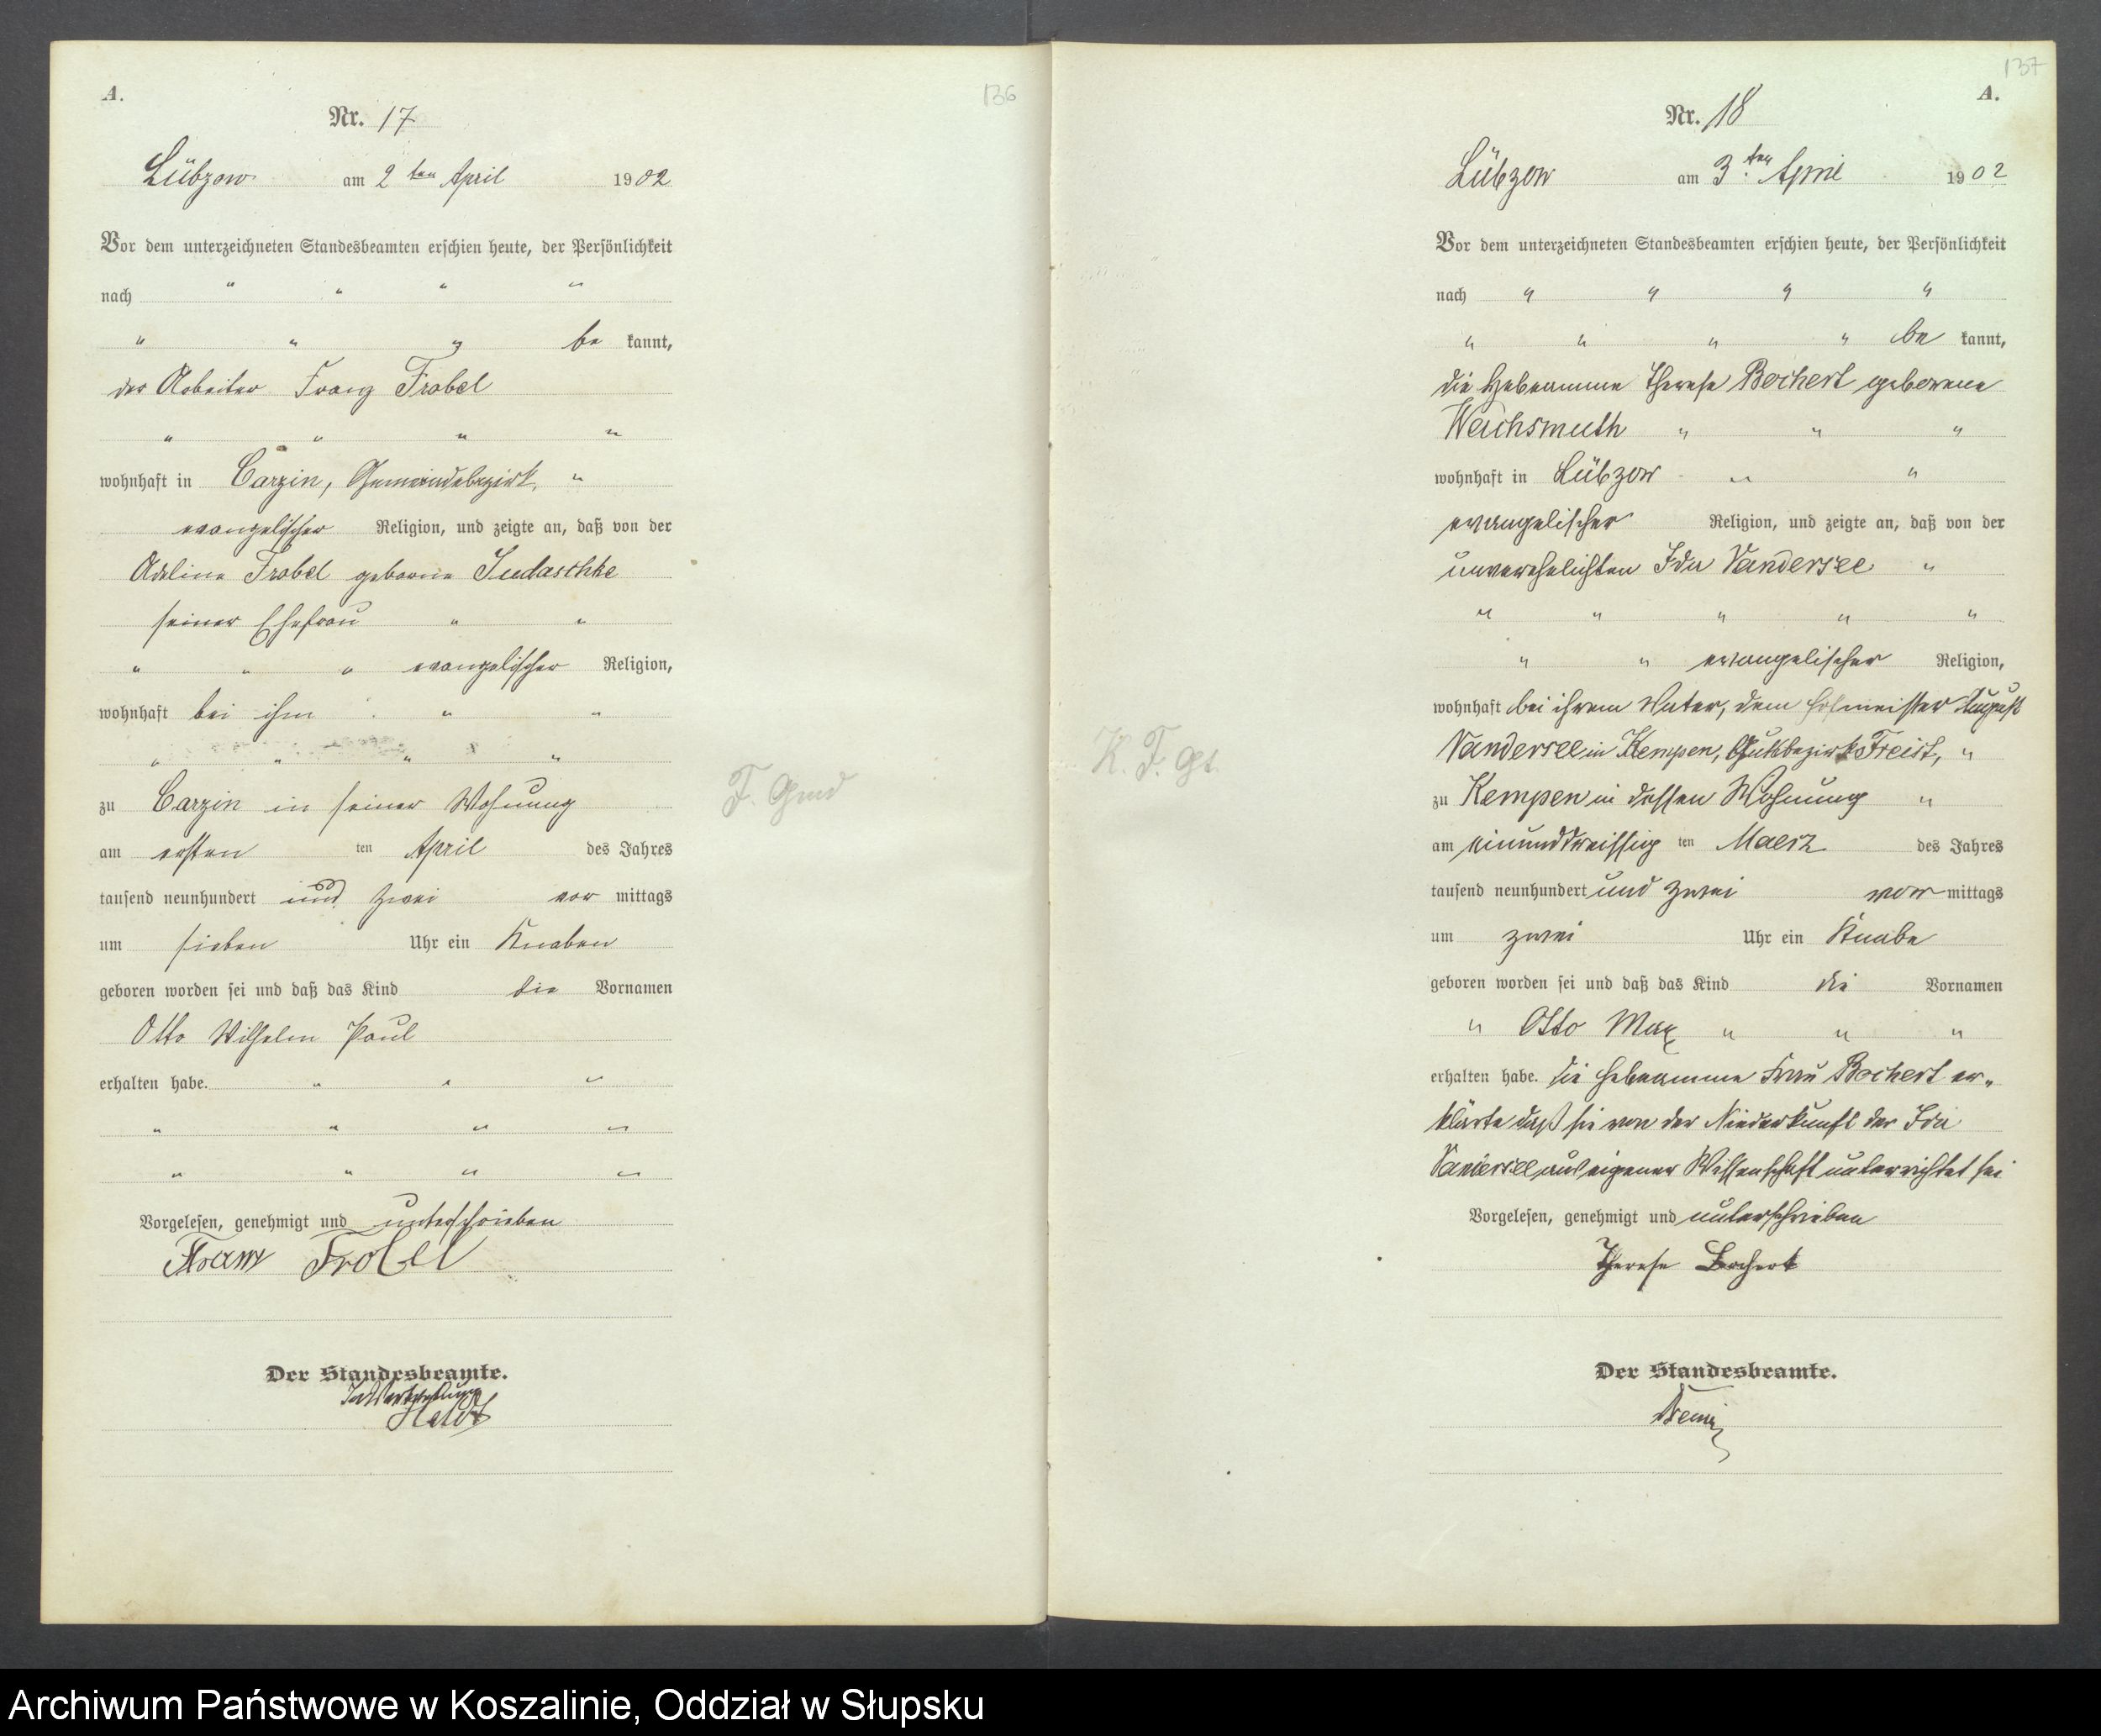 A.
136
Nr. 17
Lübzow am 2 ten April 1902
Vor dem unterzeichneten Standesbeamten erschien heute, der Persönlichkeit
nach " " " "
" " " be kannt,
der Arbeiter Franz Frobel
" " " "
wohnhaft in Carzin, Gemeindebezirk, "
evangelischer Religion, und zeigte an, daß von der
Adeline Frobel geborne Judaschke
seiner Ehefrau " "
" " " evangelischer Religion,
wohnhaft bei ihm " "
" " " "
zu Carzin in seiner Wohnung
am ersten ten April des Jahres
tausend neunhundert und zwei vor mittags
um sieben Uhr ein Knaben
geboren worden sei und daß das Kind die Vornamen
Otto Wilhelm Paul
erhalten habe. " " "
" " " "
" " " "
Vorgelesen, genehmigt und unterschrieben
Franz Frobel
Der Standesbeamte.
In Vertretung
F. Gmd
137
A.
Nr. 18
Lübzow am 3. ten April 1902
Vor dem unterzeichneten Standesbeamten erschien heute, der Persönlichkeit
nach " " " "
" " " " be kannt,
die Hebeamme Therese Bochert geborene
Weichsmuth " " "
wohnhaft in Lübzow " "
evangelischer Religion, und zeigte an, daß von der
unverehelichten Ida Vandersee "
" " " " "
" " evangelischer Religion,
wohnhaft bei ihrem Vater, dem Hofmeister August
Vandersee in Kempen, Gutsbezirk Freist, "
zu Kempen in dessen Wohnung "
am einunddreissig ten Maerz des Jahres
tausend neunhundert und zwei vor mittags
um zwei Uhr ein Knabe
geboren worden sei und daß das Kind die Vornamen
" Otto Max " " "
erhalten habe. Die Hebeamme Frau Bochert er-
klärte daß sie von der Niederkunft der Ida
Vandersee aus eigener Wissenschaft unterrichtet sei
Vorgelesen, genehmigt und unterschrieben
Therese Bochert
Der Standesbeamte.
K. F. Gt.
Archiwum Państwowe w Koszalinie, Oddział w Słupsku